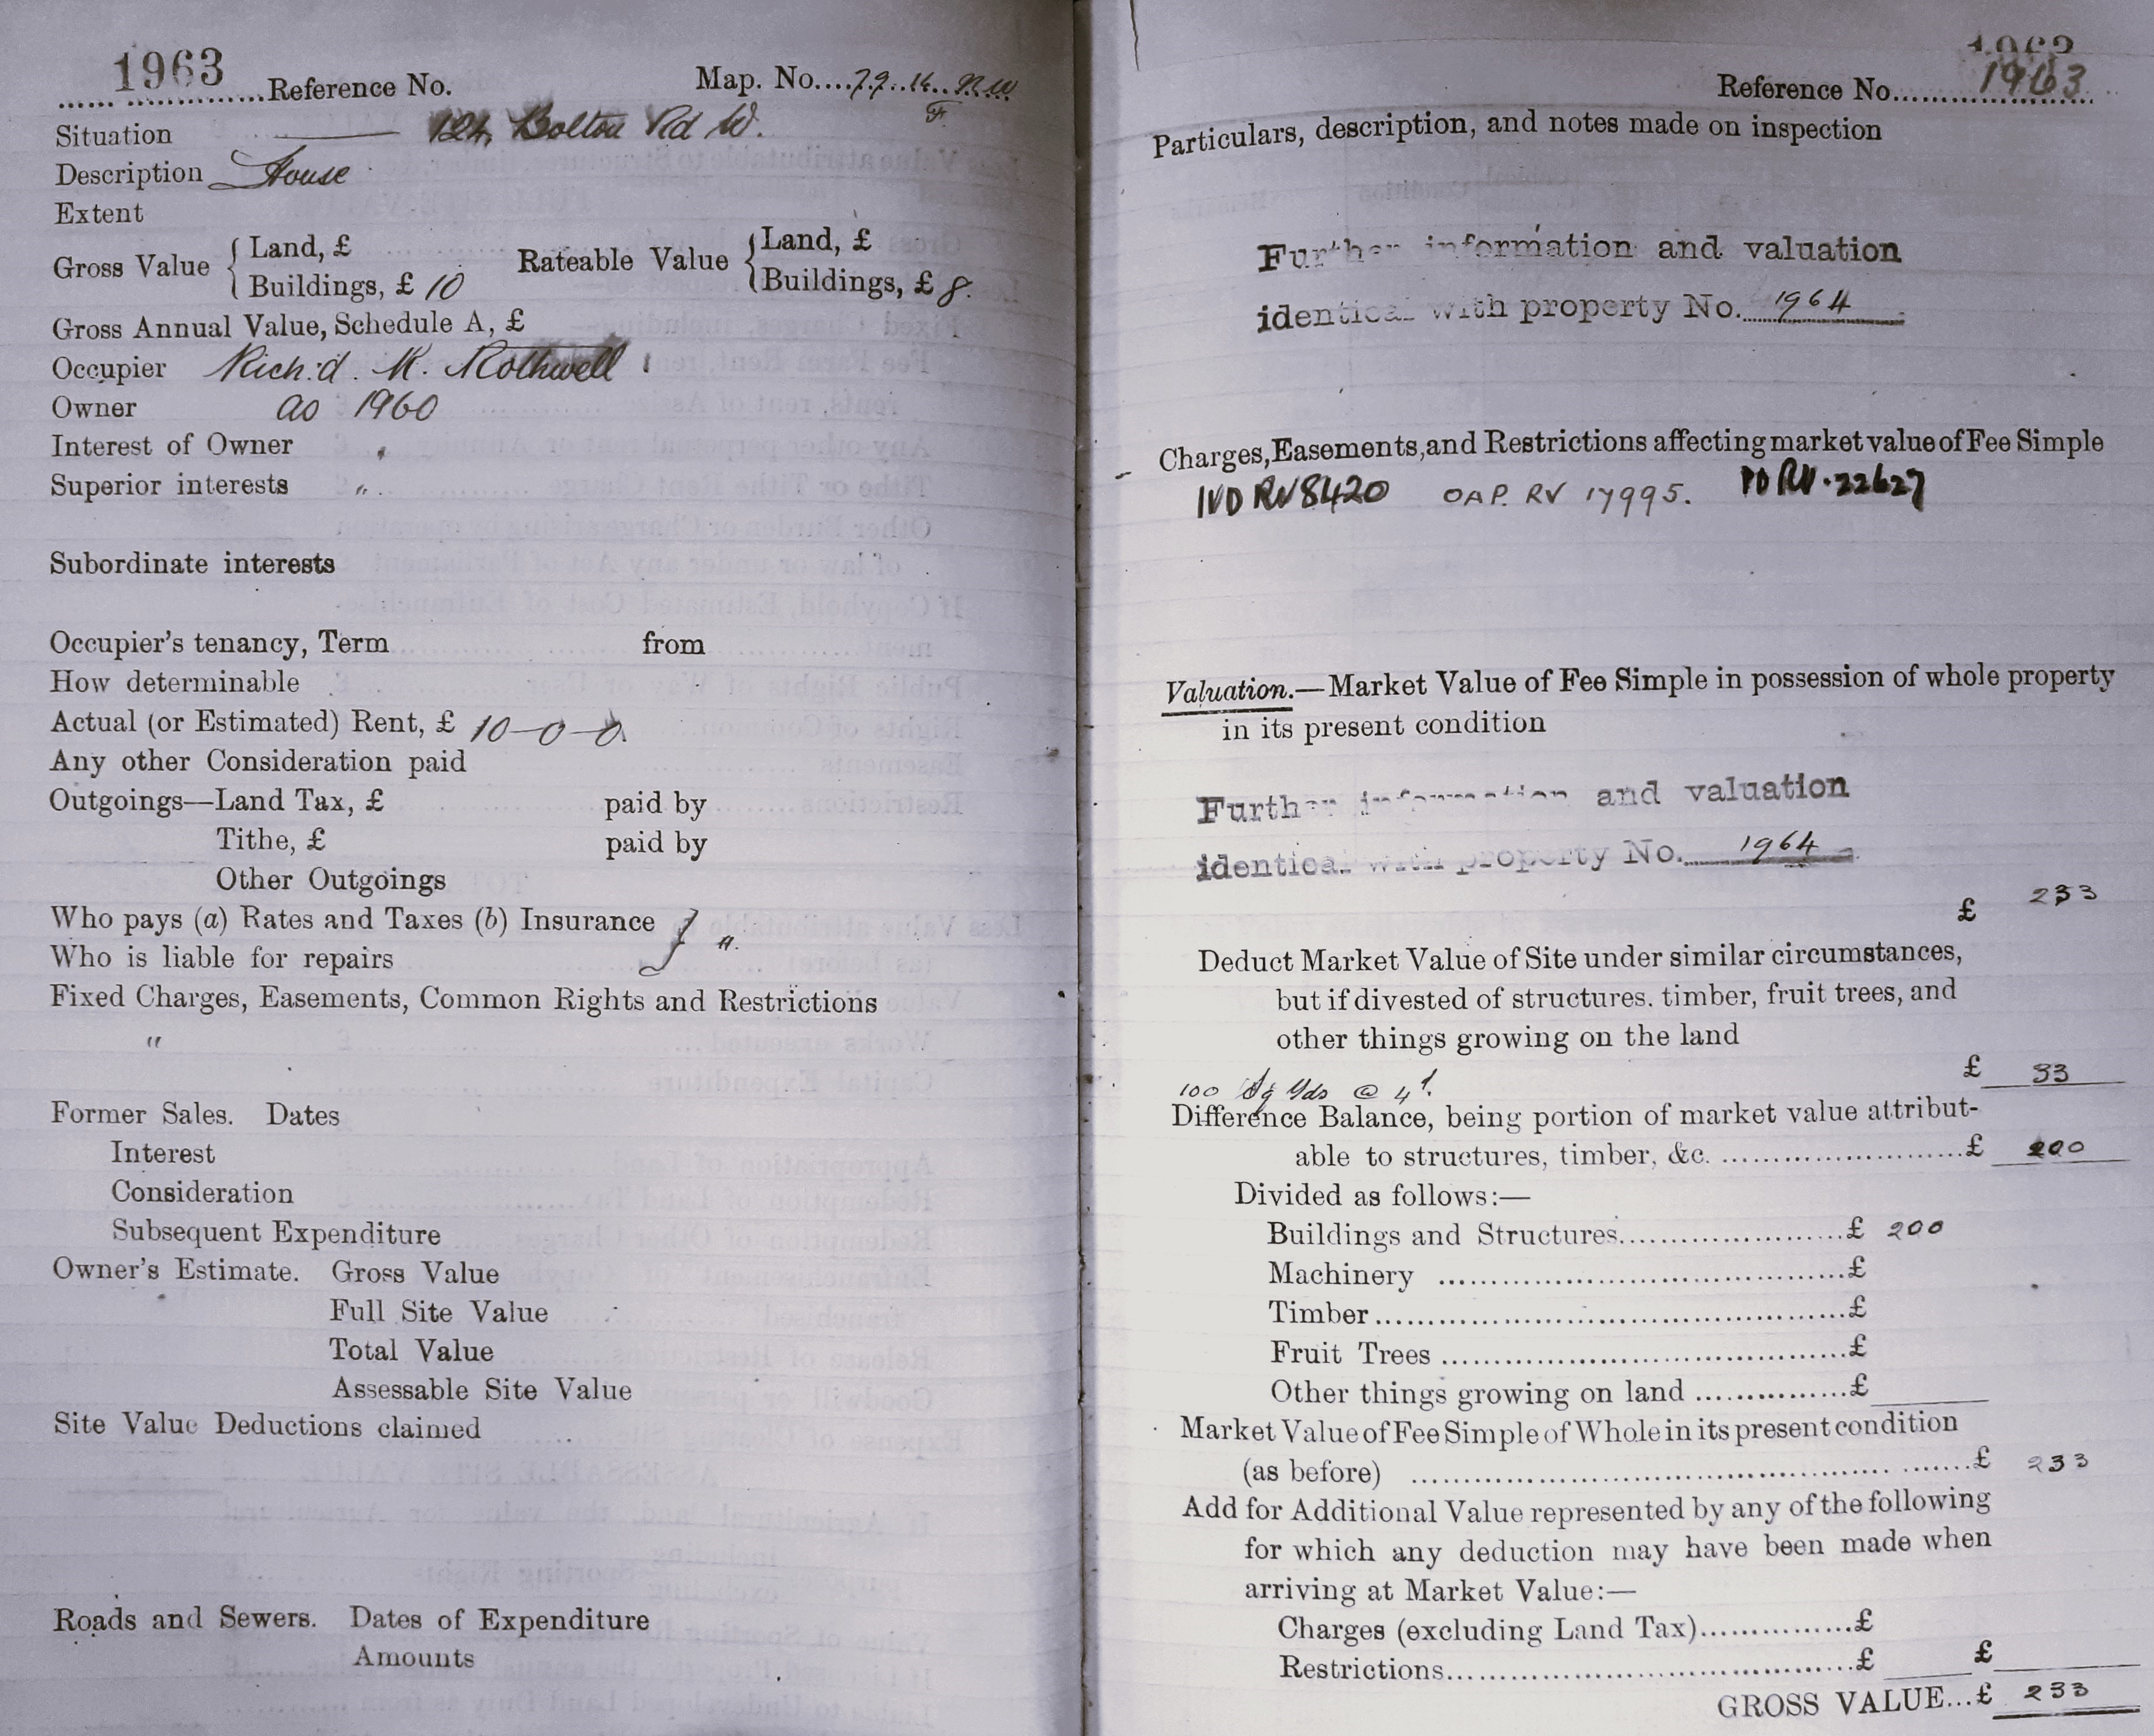 1963 Reference No. Map. No. 79.16
Situation 124, Bolton Rd W.
Description House
Extent
Gross Value { Land, £ Rateable Value { Land, £
Buildings, £ 10 Buildings, £ 8.
Gross Annual Value, Schedule A, £
Occupier Rich.d. K. Rothwell
Owner as 1960
Interest of Owner "
Superior interests "
Subordinate interests
Occupier's tenancy, Term from
How determinable
Actual (or Estimated) Rent, £ 10-0-0.
Any other Consideration paid
Outgoings—Land Tax, £ paid by
Tithe, £ paid by
Other Outgoings
Who pays (a) Rates and Taxes (b) Insurance } "
Who is liable for repairs
Fixed Charges, Easements, Common Rights and Restrictions
"
Former Sales. Dates
Interest
Consideration
Subsequent Expenditure
Owner's Estimate. Gross Value
Full Site Value
Total Value
Assessable Site Value
Site Value Deductions claimed
Roads and Sewers. Dates of Expenditure
Amounts
1963
Reference No. 1963
Particulars, description, and notes made on inspection
Further information and valuation
identical with property No. 1964
Charges, Easements, and Restrictions affecting market value of Fee Simple
IVD RV 8420 OAP. RV 17995. PD RV. 22627
Valuation.—Market Value of Fee Simple in possession of whole property
in its present condition
Further information and valuation
identical with property No. 1964
£ 233
Deduct Market Value of Site under similar circumstances,
but if divested of structures. timber, fruit trees, and
other things growing on the land
£ 33
100 Sq Yds @ 4d.
Difference Balance, being portion of market value attribut-
able to structures, timber, &c. £ 200
Divided as follows:—
Buildings and Structures £ 200
Machinery £
Timber £
Fruit Trees £
Other things growing on land £
Market Value of Fee Simple of Whole in its present condition
(as before) £ 233
Add for Additional Value represented by any of the following
for which any deduction may have been made when
arriving at Market Value:—
Charges (excluding Land Tax) £
Restrictions £ £
GROSS VALUE... £ 233